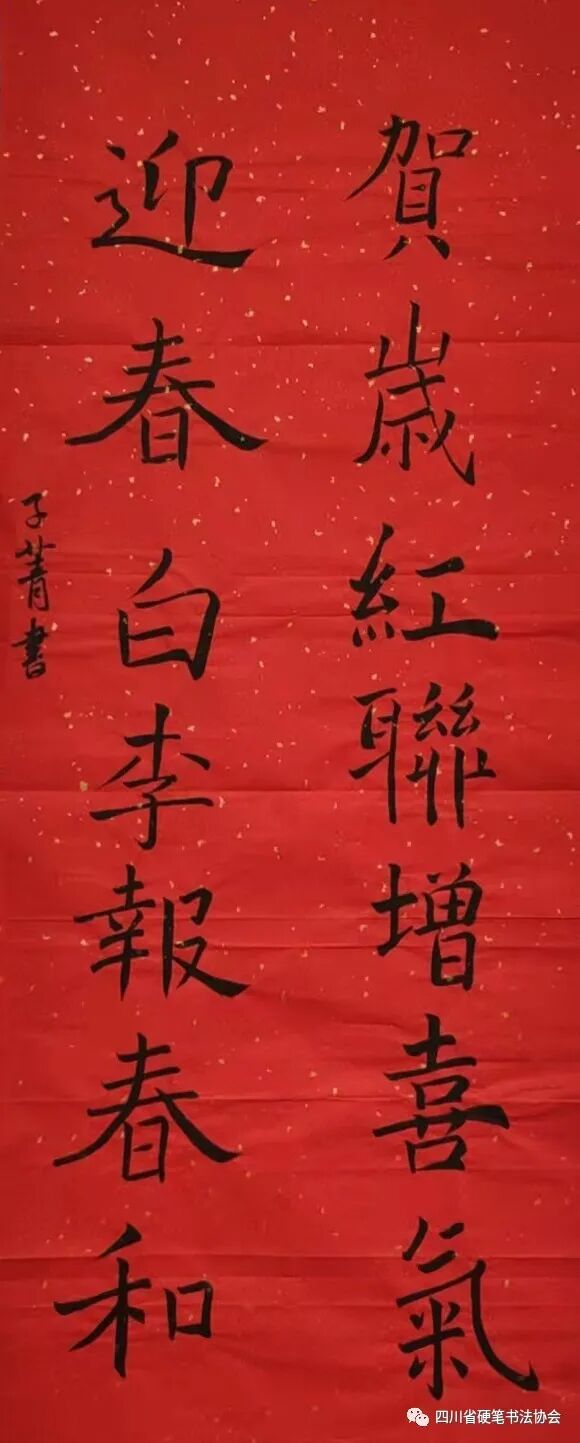 賀歲紅聯增喜氣
迎春白李報春和
子菁書
四川省硬笔书法协会